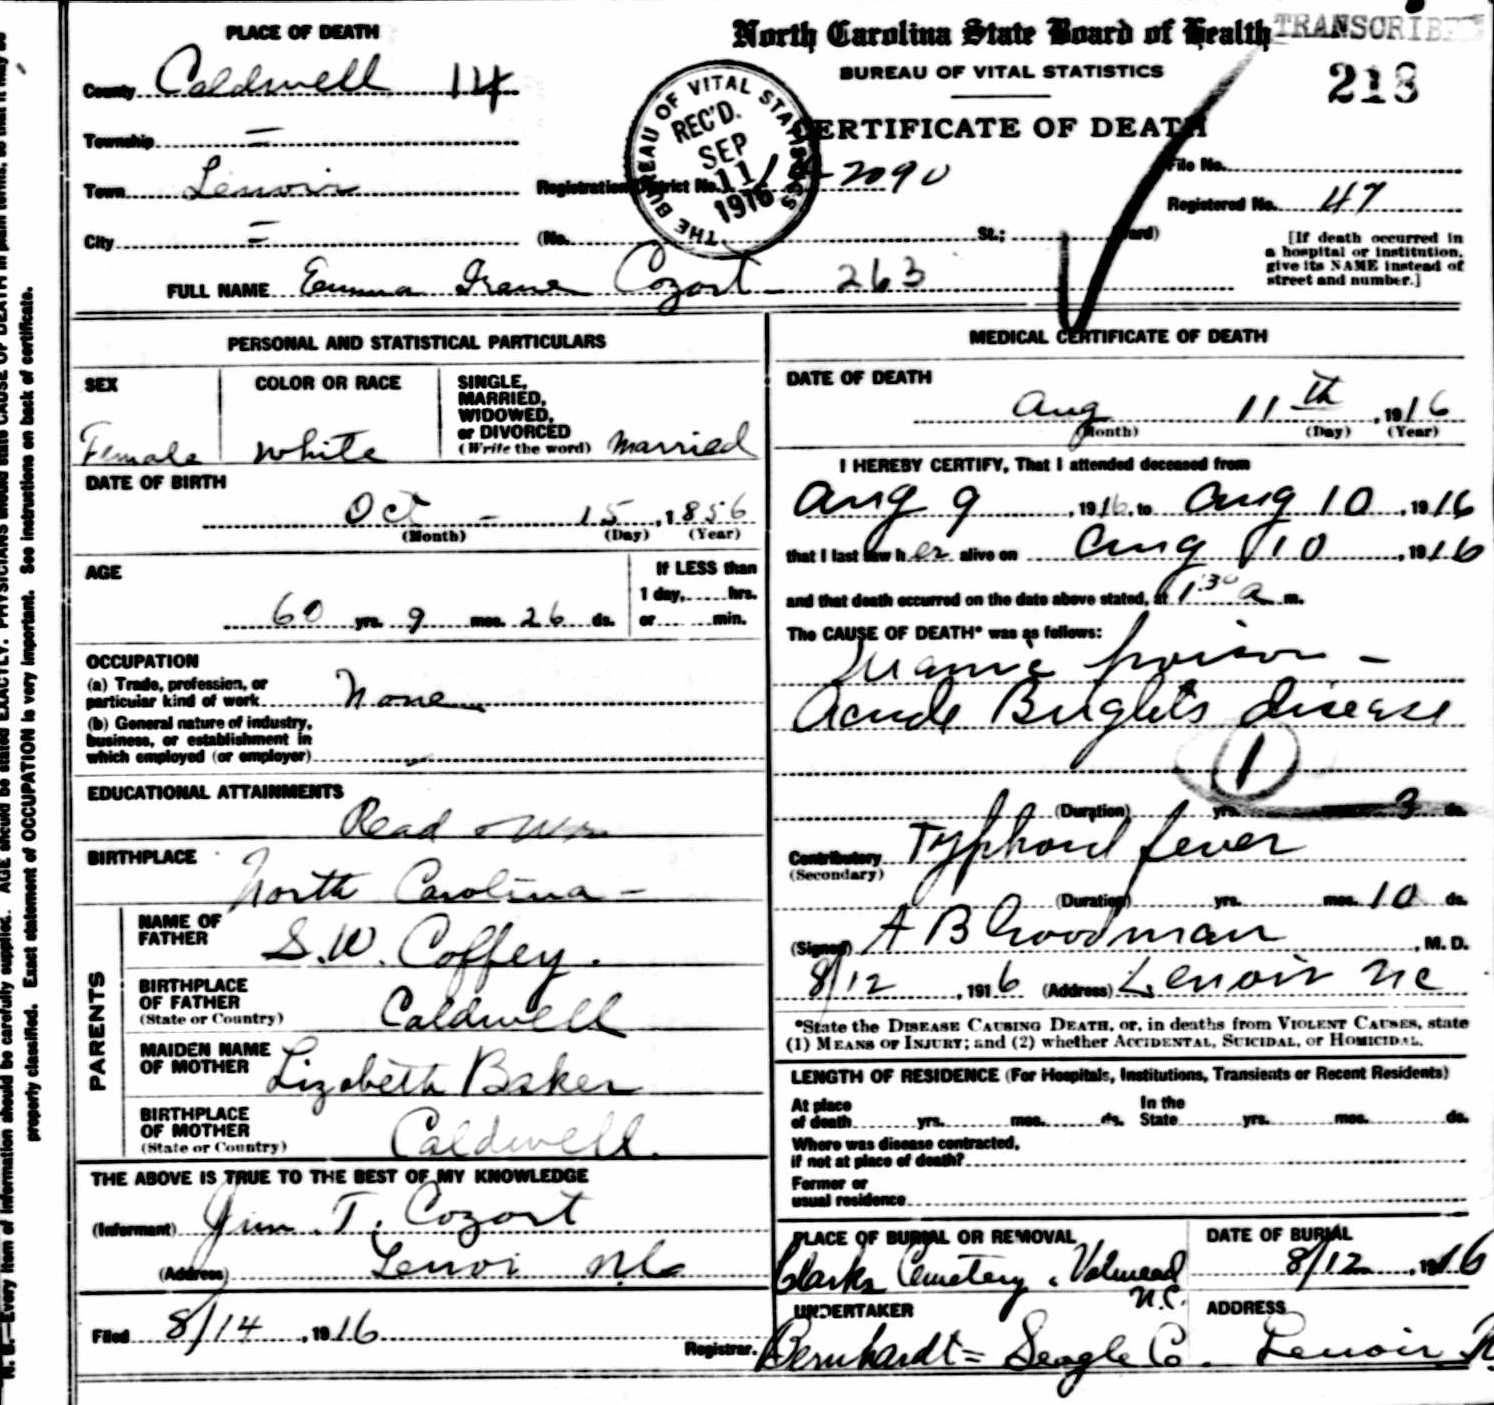 North Carolina State Board of Health
TRANSCRIBED
BUREAU OF VITAL STATISTICS
218
CERTIFICATE OF DEATH
THE BUREAU OF VITAL STATISTICS
REC'D.
SEP
11
1916
PLACE OF DEATH
County Caldwell 14
Township =
Town Lenoir
City =
Registration District No. 14-2090
File No.
Registered No. 47
(No. St.; Ward)
[If death occurred in
a hospital or institution,
give its NAME instead of
street and number.]
FULL NAME Emma Irene Cozort 263
PERSONAL AND STATISTICAL PARTICULARS
SEX
Female
COLOR OR RACE
White
SINGLE,
MARRIED,
WIDOWED,
or DIVORCED
(Write the word) Married
DATE OF BIRTH
Oct - 15, 1856
(Month) (Day) (Year)
AGE
60 yrs. 9 mos. 26 ds.
If LESS than
1 day, hrs.
or min.
OCCUPATION
(a) Trade, profession, or
particular kind of work None
(b) General nature of industry,
business, or establishment in
which employed (or employer)
EDUCATIONAL ATTAINMENTS
Read
BIRTHPLACE
North Carolina -
PARENTS
NAME OF
FATHER
S.W. Coffey.
BIRTHPLACE
OF FATHER
(State or Country) Caldwell
MAIDEN NAME
OF MOTHER
Lizabeth Baker
BIRTHPLACE
OF MOTHER
(State or Country) Caldwell.
THE ABOVE IS TRUE TO THE BEST OF MY KNOWLEDGE
(Informant) Jim. T. Cozort
(Address) Lenoi N.C
Filed 8/14, 1916
Registrar.
MEDICAL CERTIFICATE OF DEATH
DATE OF DEATH
Aug 11th, 1916
(Month) (Day) (Year)
I HEREBY CERTIFY, That I attended deceased from
Aug 9, 1916, to Aug 10, 1916
that I last saw her alive on Aug 10, 1916
and that death occurred on the date above stated, at 1:30 a m.
The CAUSE OF DEATH* was as follows:
Uramic poison -
Acude Brights disease
1
(Duration) yrs. 3 ds.
Contributory Typhoid fever
(Secondary)
(Duration) yrs. mos. 10 ds.
(Signed) A B Goodman, M. D.
8/12, 1916 (Address) Lenoir NC
*State the DISEASE CAUSING DEATH, or, in deaths from VIOLENT CAUSES, state
(1) MEANS OF INJURY; and (2) whether ACCIDENTAL, SUICIDAL, or HOMICIDAL.
LENGTH OF RESIDENCE (For Hospitals, Institutions, Transients or Recent Residents)
At place
of death yrs. mos. ds.
In the
State yrs. mos. ds.
Where was disease contracted,
if not at place of death?
Former or
usual residence
PLACE OF BURIAL OR REMOVAL
Clarks Cemetery, Valmead
N.C.
DATE OF BURIAL
8/12, 1916
UNDERTAKER
Bernhardt = Seagle Co.
ADDRESS
Lenoir N
N. B.—Every item of information should be carefully supplied. AGE should be stated EXACTLY. PHYSICIANS should state CAUSE OF DEATH in plain terms, so that it may be
properly classified. Exact statement of OCCUPATION is very important. See instructions on back of certificate.